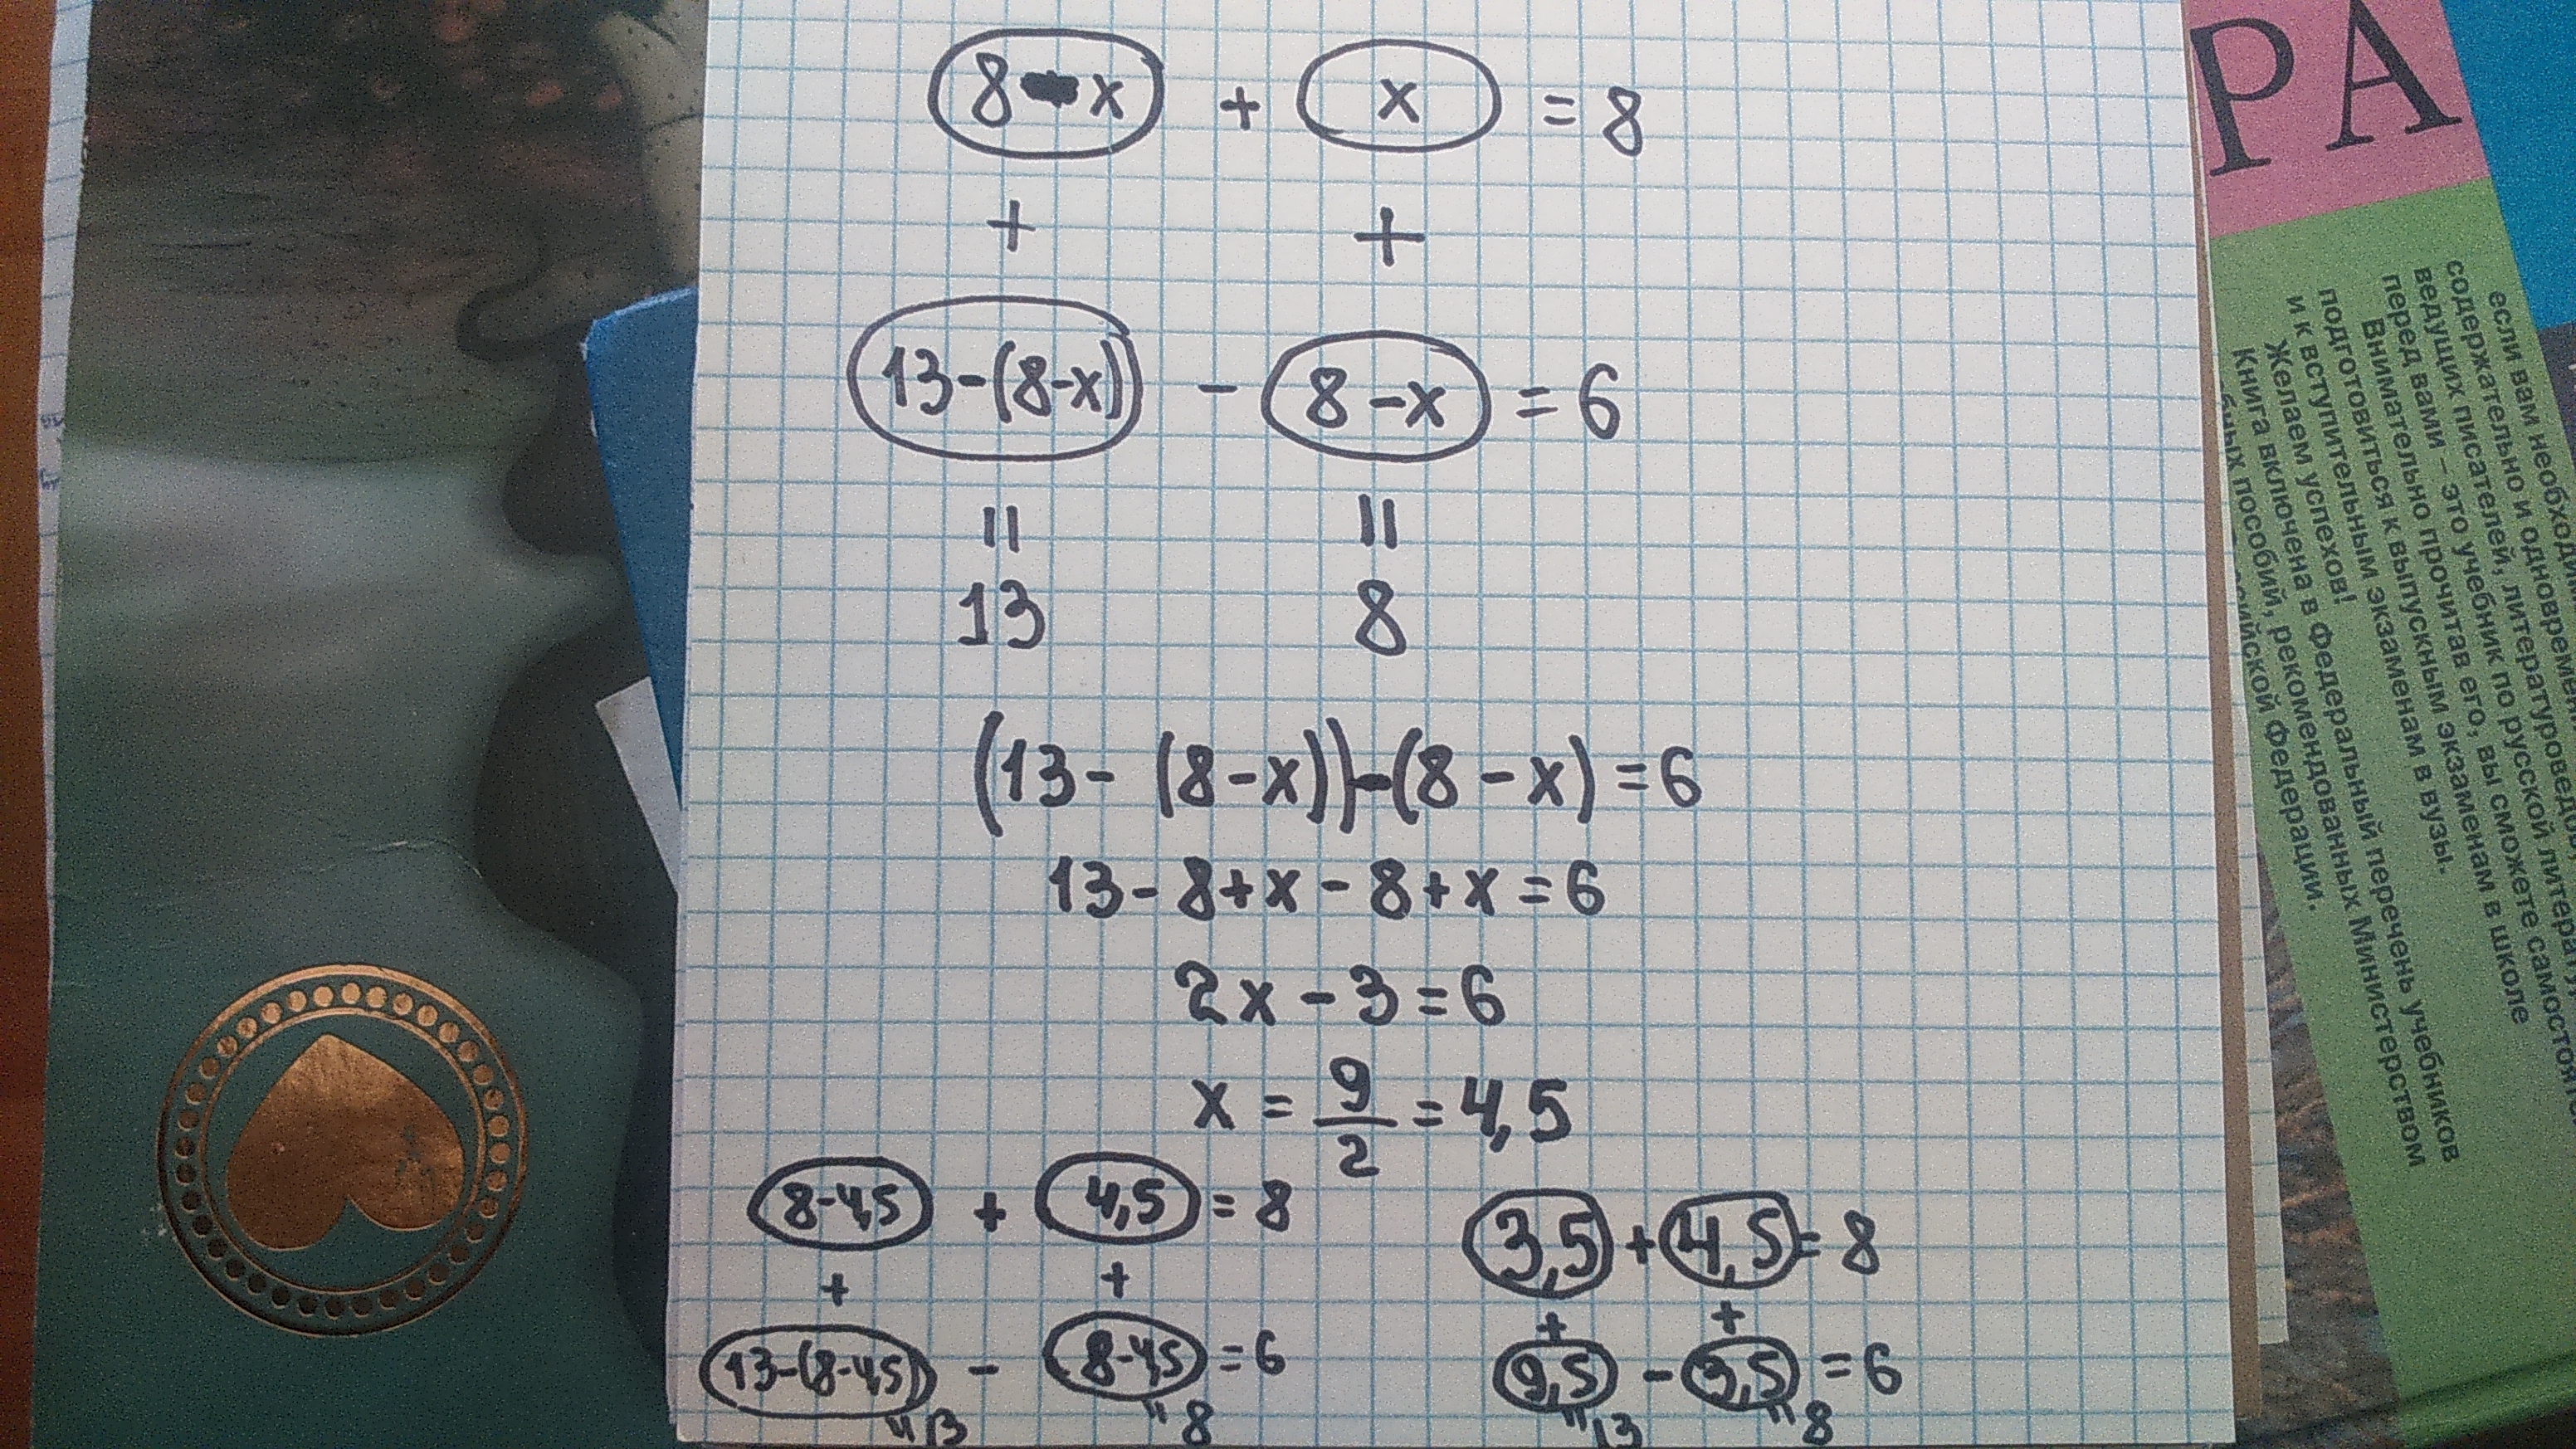 8-x + x = 8
+ +
13-(8-x) - 8-x = 6
= =
13 8
(13-(8-x))-(8-x)=6
13-8+x-8+x=6
2x-3=6
x = 9/2 = 4,5
8-4,5 + 4,5 = 8
+ +
13-(8-4,5) - 8-4,5 = 6
=13 =8
3,5 + 4,5 = 8
+ +
9,5 - 3,5 = 6
=13 =8
РА
если вам необход
содержательно и одновреме
ведущих писателей, литературовед
перед вами – это учебник по русской литер
Внимательно прочитав его, вы сможете самосто
подготовиться к выпускным экзаменам в школе
и к вступительным экзаменам в вузы.
Желаем успехов!
Книга включена в Федеральный перечень учебников
пособий, рекомендованных Министерством
Федерации.